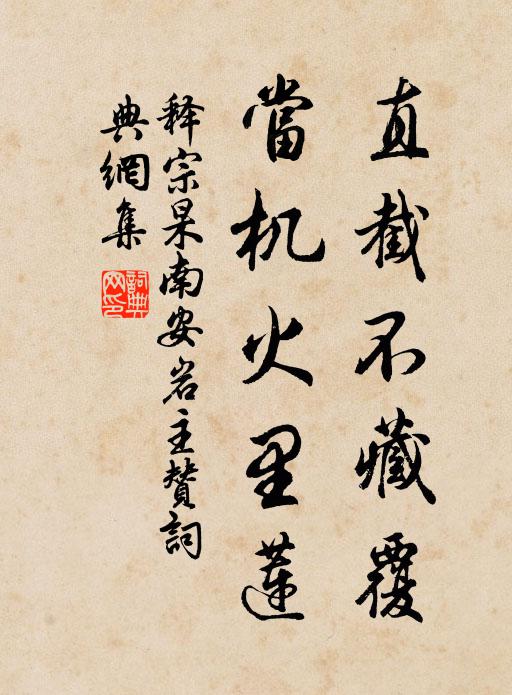 直截不藏覆
當机火里蓮
释宗杲南安岩主贊詞
典網集
詞典网印